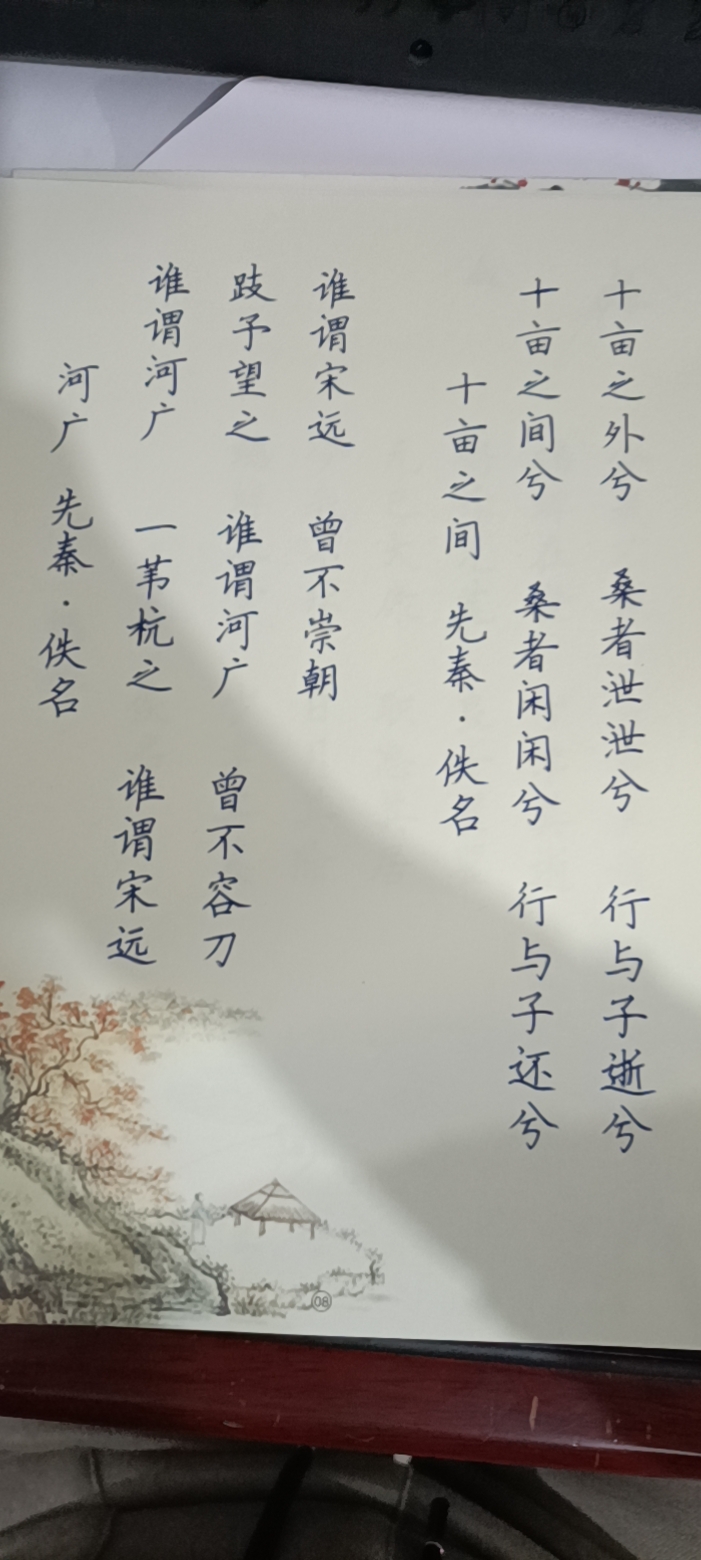 河广 先秦·佚名
谁谓河广 一苇杭之 谁谓宋远
跂予望之 谁谓河广 曾不容刀
谁谓宋远 曾不崇朝
十亩之间 先秦·佚名
十亩之间兮 桑者闲闲兮 行与子还兮
十亩之外兮 桑者泄泄兮 行与子逝兮
08